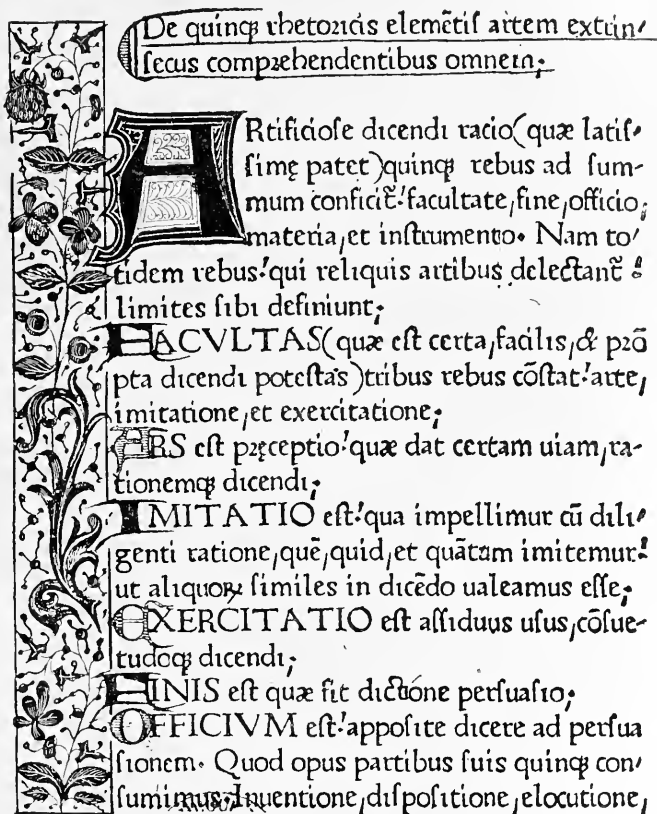 De quinqꝫ rhetoricis elemẽtiſ artem extrin⸗
ſecus compꝛehendentibus omnem;
ARtificioſe dicendi racio(quæ latiſ⸗
ſimę patet)quinqꝫ rebus ad ſum-
mum conficit̃: facultate,fine,officio,
materia,et inſtrumento. Nam to⸗
tidem rebus: qui reliquis artibus delectant̃:
limites ſibi definiunt;
FACVLTAS(quæ eſt certa,facilis,& pꝛõ
pta dicendi poteſtas)tribus rebus cõſtat: arte,
imitatione,et exercitatione;
ARS eſt pꝛęceptio: quæ dat certam uiam,ra-
tionemqꝫ dicendi;
IMITATIO eſt: qua impellimur cũ dili⸗
genti ratione,quẽ,quid,et quãtum imitemur:
ut aliquoꝝ ſimiles in dicẽdo ualeamus eſſe;
EXERCITATIO eſt aſſiduus uſus,cõſue-
tudoqꝫ dicendi;
FINIS eſt quæ fit dictione perſuaſio;
OFFICIVM eſt: appoſite dicere ad perſua
ſionem. Quod opus partibus ſuis quinqꝫ con⸗
ſumimus. Inuentione,diſpoſitione,elocutione,